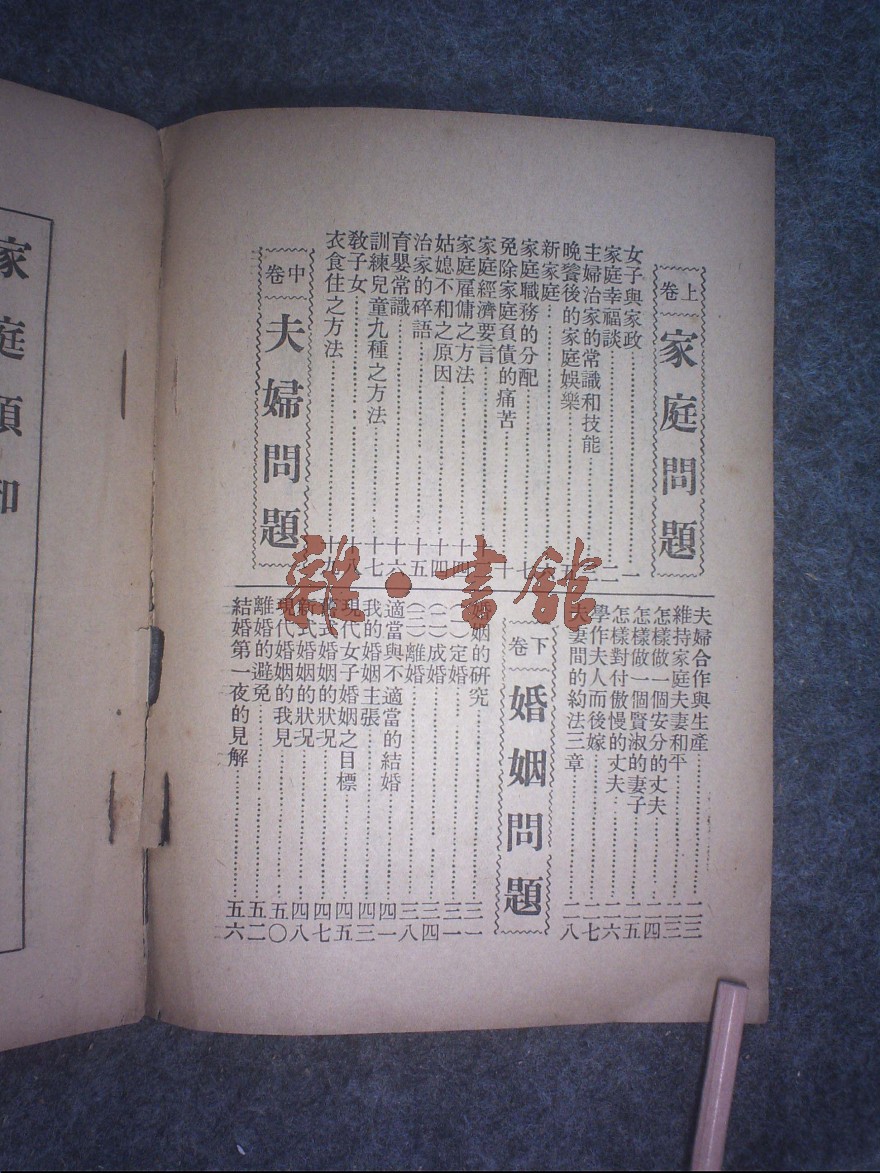 家庭須和
上卷 家庭問題
女子與家政
家庭幸福談
主婦治家的常識和技能
晚餐後的家庭娛樂
新家庭
家庭職務的分配
免除家庭負債的痛苦
家庭經濟要言
家庭雇傭之方法
姑媳不和之原因 十四
治家的碎語 十五
育嬰常識 十六
訓練兒童九種之方法 十七
敎子女 十八
衣食住之方法 十九
中卷 夫婦問題
夫婦合作與生產 二三
維持家庭夫妻和平 二三
怎樣做一個安分的丈夫 二四
怎樣做一個賢淑的妻子 二五
怎樣對付傲慢的丈夫 二六
學作夫人而後嫁 二七
夫妻間的約法三章 二八
下卷 婚姻問題
婚姻的研究 三一
(一)定婚 三一
(二)成婚 三四
(三)離婚 三八
適當與不適當的結婚 四一
我的婚姻主張 四三
現代女子婚姻之目標 四五
舊式婚姻的狀况 四七
新式婚姻的狀况 四八
現代婚姻的我見 五〇
離婚的避免 五二
結婚第一夜的見解 五六
雜·書館